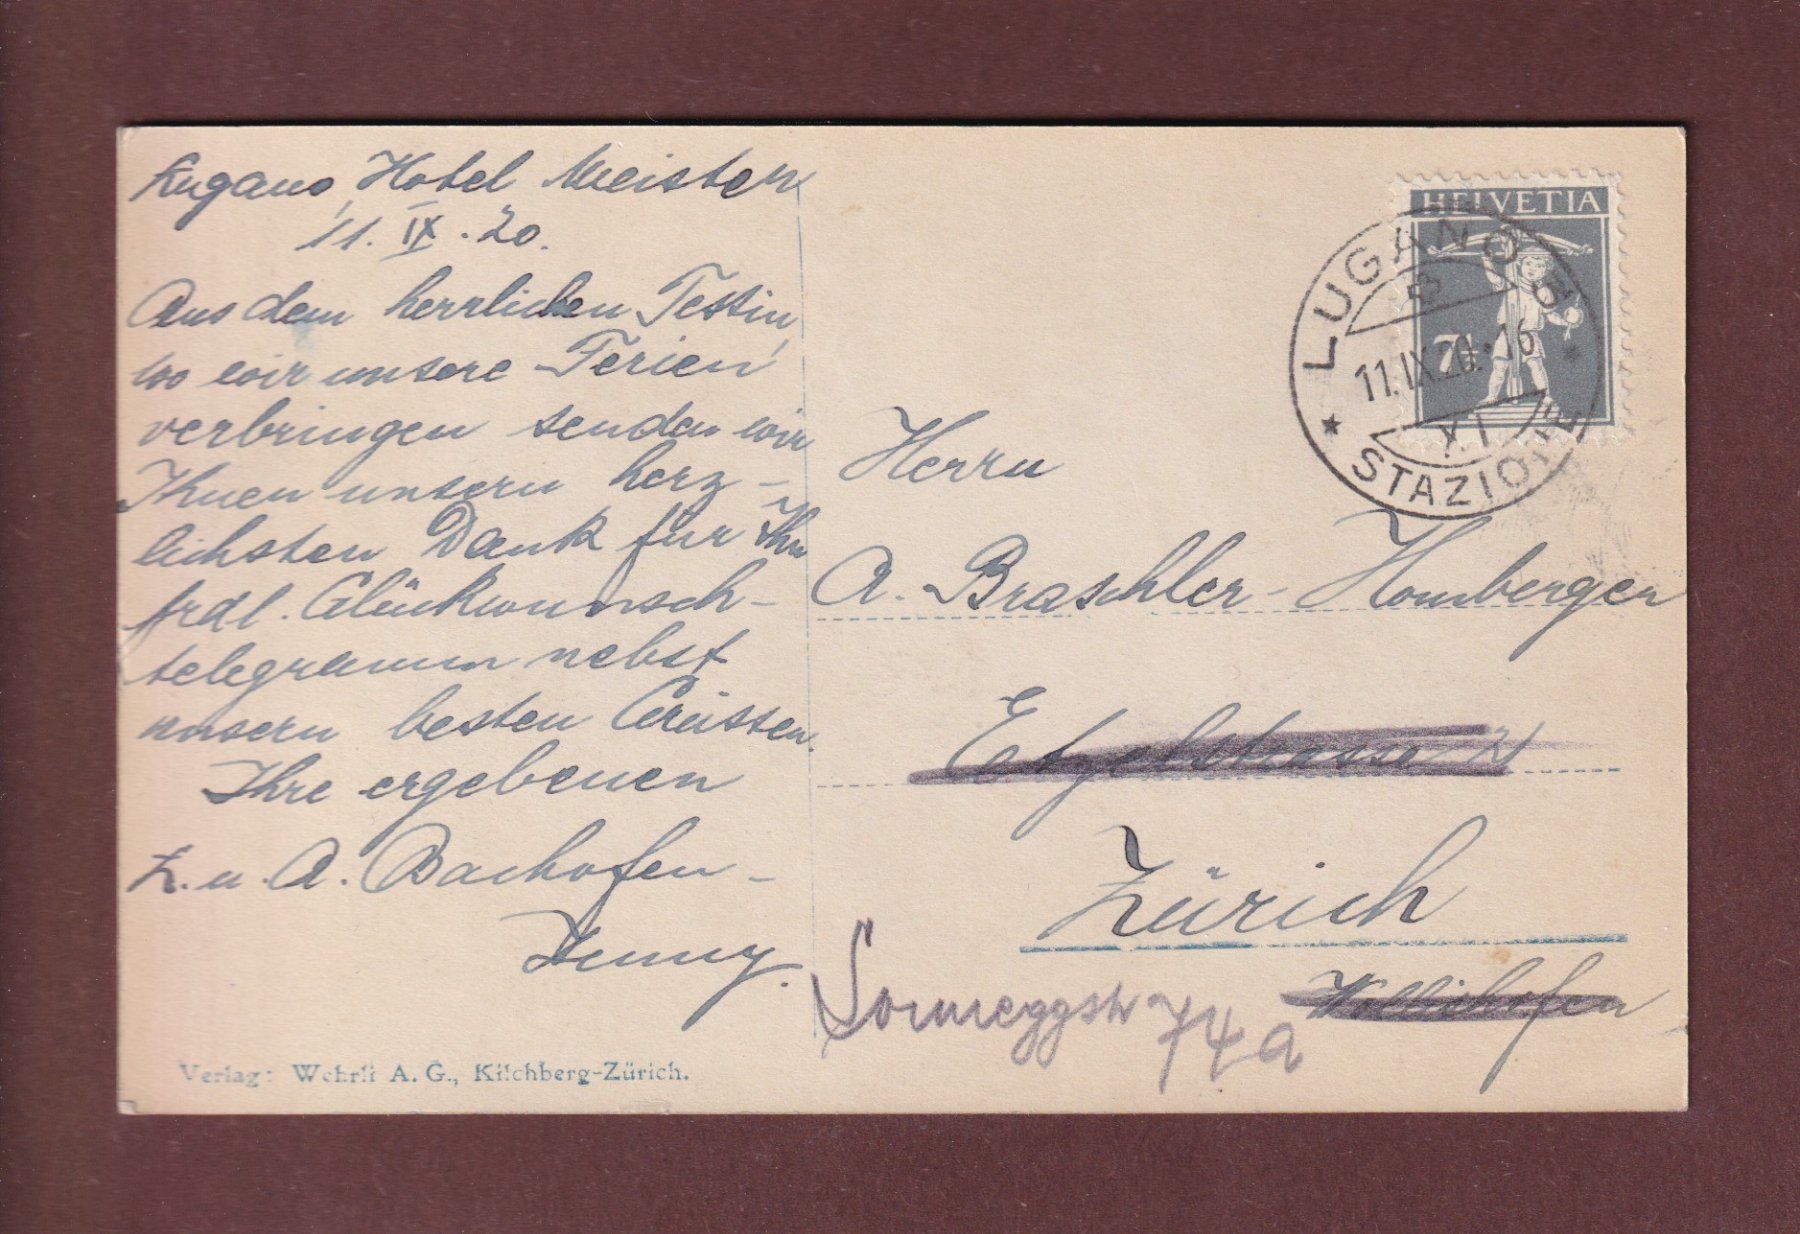 Lugano, Hotel Meister
11. IX. 20.
Aus dem herrlichen Tessin,
wo wir unsere Ferien
verbringen senden wir
Ihnen unsern herz-
lichsten Dank für Ihr
frdl. Glückwunsch-
telegramm nebst
unsern besten Grüssen.
Ihre ergebenen
u. A. Bachofen-
Jenny.
Verlag: Wehrli A. G., Kilchberg-Zürich.
HELVETIA
7½
LUGANO 3
11.IX.20.-16
XI
STAZIONE
Herrn
A. Braschler-Homberger
Etzelstrasse
Zürich
Wollishofen
Sonneggstr 74a